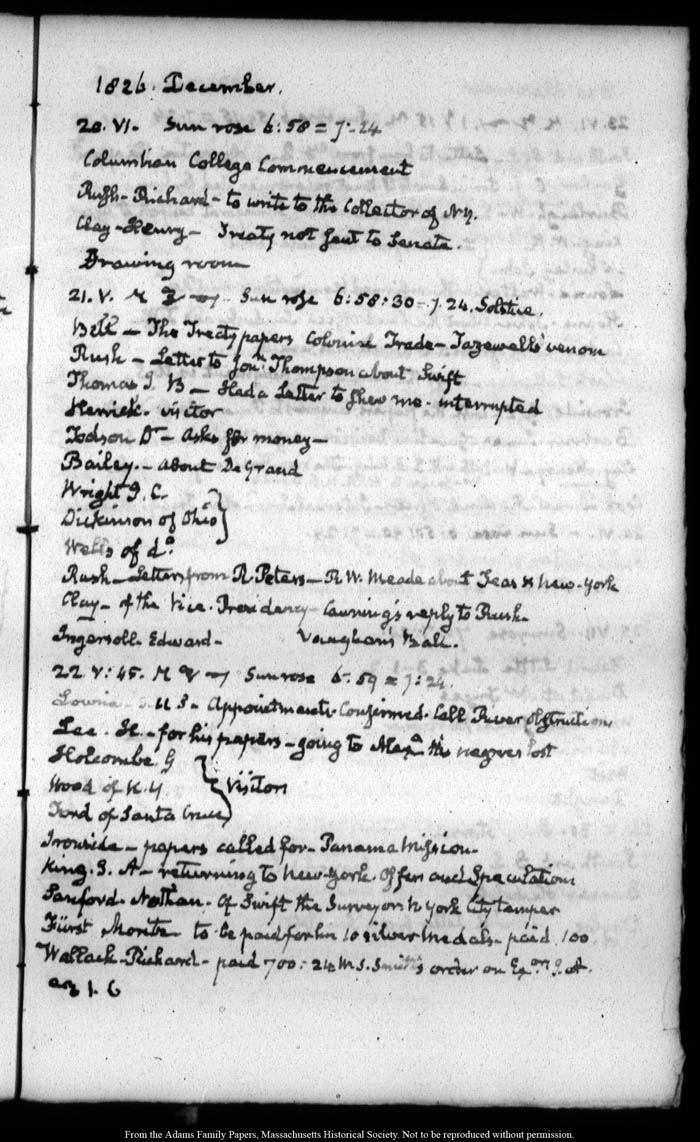 1826. December.
20. VI. Sun rose 6:58 = 7-24
Columbian College Commencement
Rush-Richard- to write to the Collector of N.Y.
Clay-Henry- Treaty not sent to Senate.
Drawing room
21. V. Sun rose 6:58:30-7.24. Solstice.
Belt- The Treaty papers Colonial Trade- Tazewell's venom
Rush- Letter to Jon.n Thompson about Swift
Thomas J. B- Had a Letter to shew me. interrupted
Herrick. visitor
Todson Dr- asks for money-
Bailey.- about DeGrand
Wright J. C.
Dickinson of Ohio
Wells of do.
Rush- Letters from R. Peters- R. W. Meade about Teas & New-York
Clay- of the Vice. Presidency- Canning's reply to Rush-
Ingersoll. Edward- Vaughan's Ball.
22. V:45. Sun rose 6-59 = 7:24.
Lowrie- U S- Appointments Confirmed. Call River obstruction
Lee. H.- for his papers- going to his negroes lost
Holcombe G
Wood of N.Y. Visitors
Ford of Santa Cruz
Ironside- papers called for- Panama Mission-
King. S. A- returning to New-York. Offer and Speculations
Sanford. Nathan. Of Swift the Surveyor N York City temper
Fürst Moritz to be paid for him 10 silver medals- paid 100
Wallach-Richard- paid 700: 24 W. S. Smith's order on Ex.on J. A.
1. 6
From the Adams Family Papers, Massachusetts Historical Society. Not to be reproduced without permission.